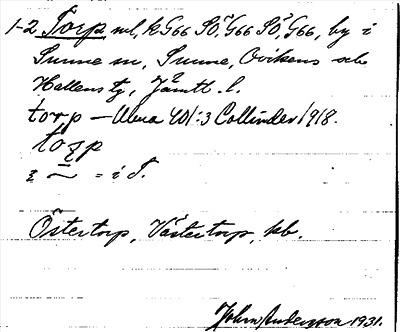 1-2 Torp ml, k G66 SO, G66 SO, G66, by i
Sunne sn, Sunne, Ovikens och
Hallens tg, Jämtl. l.
torp — Ulma 401:3 Collinder 1918.
torp
= i T.
Östertorp, Västertorp, kb.
John Andersson 1931.